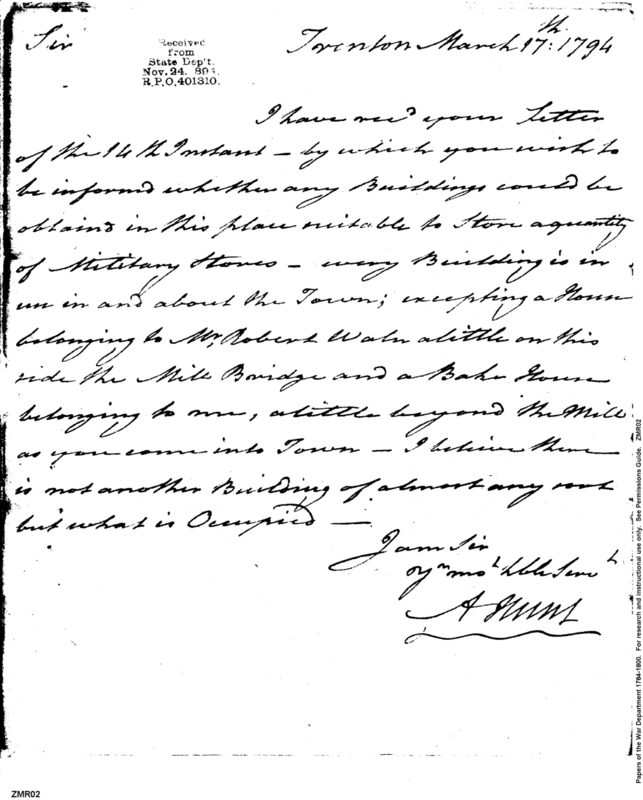 Sir
Received
from
State Dep't.
Nov. 24. 893.
R.P.O. 401310.
Trenton March 17th: 1794
I have recd your Letter
of the 14th Instant – by which you wish to
be informd whether any Buildings could be
obtaind in this place suitable to Store a quantity
of Military Stores – every Building is in
use in and about the Town; excepting a House
belonging to Mr. Robert Waln a little on this
side the Mill Bridge and a Bake House
belonging to me, a little beyond the Mill
as you come into Town – I believe there
is not another Building of almost any sort
but what is Occupied —
I am Sir
yr mot hble Servt
A Hunt
ZMR02
Papers of the War Department 1784-1800. For research and instructional use only. See Permissions Guide. ZMR02